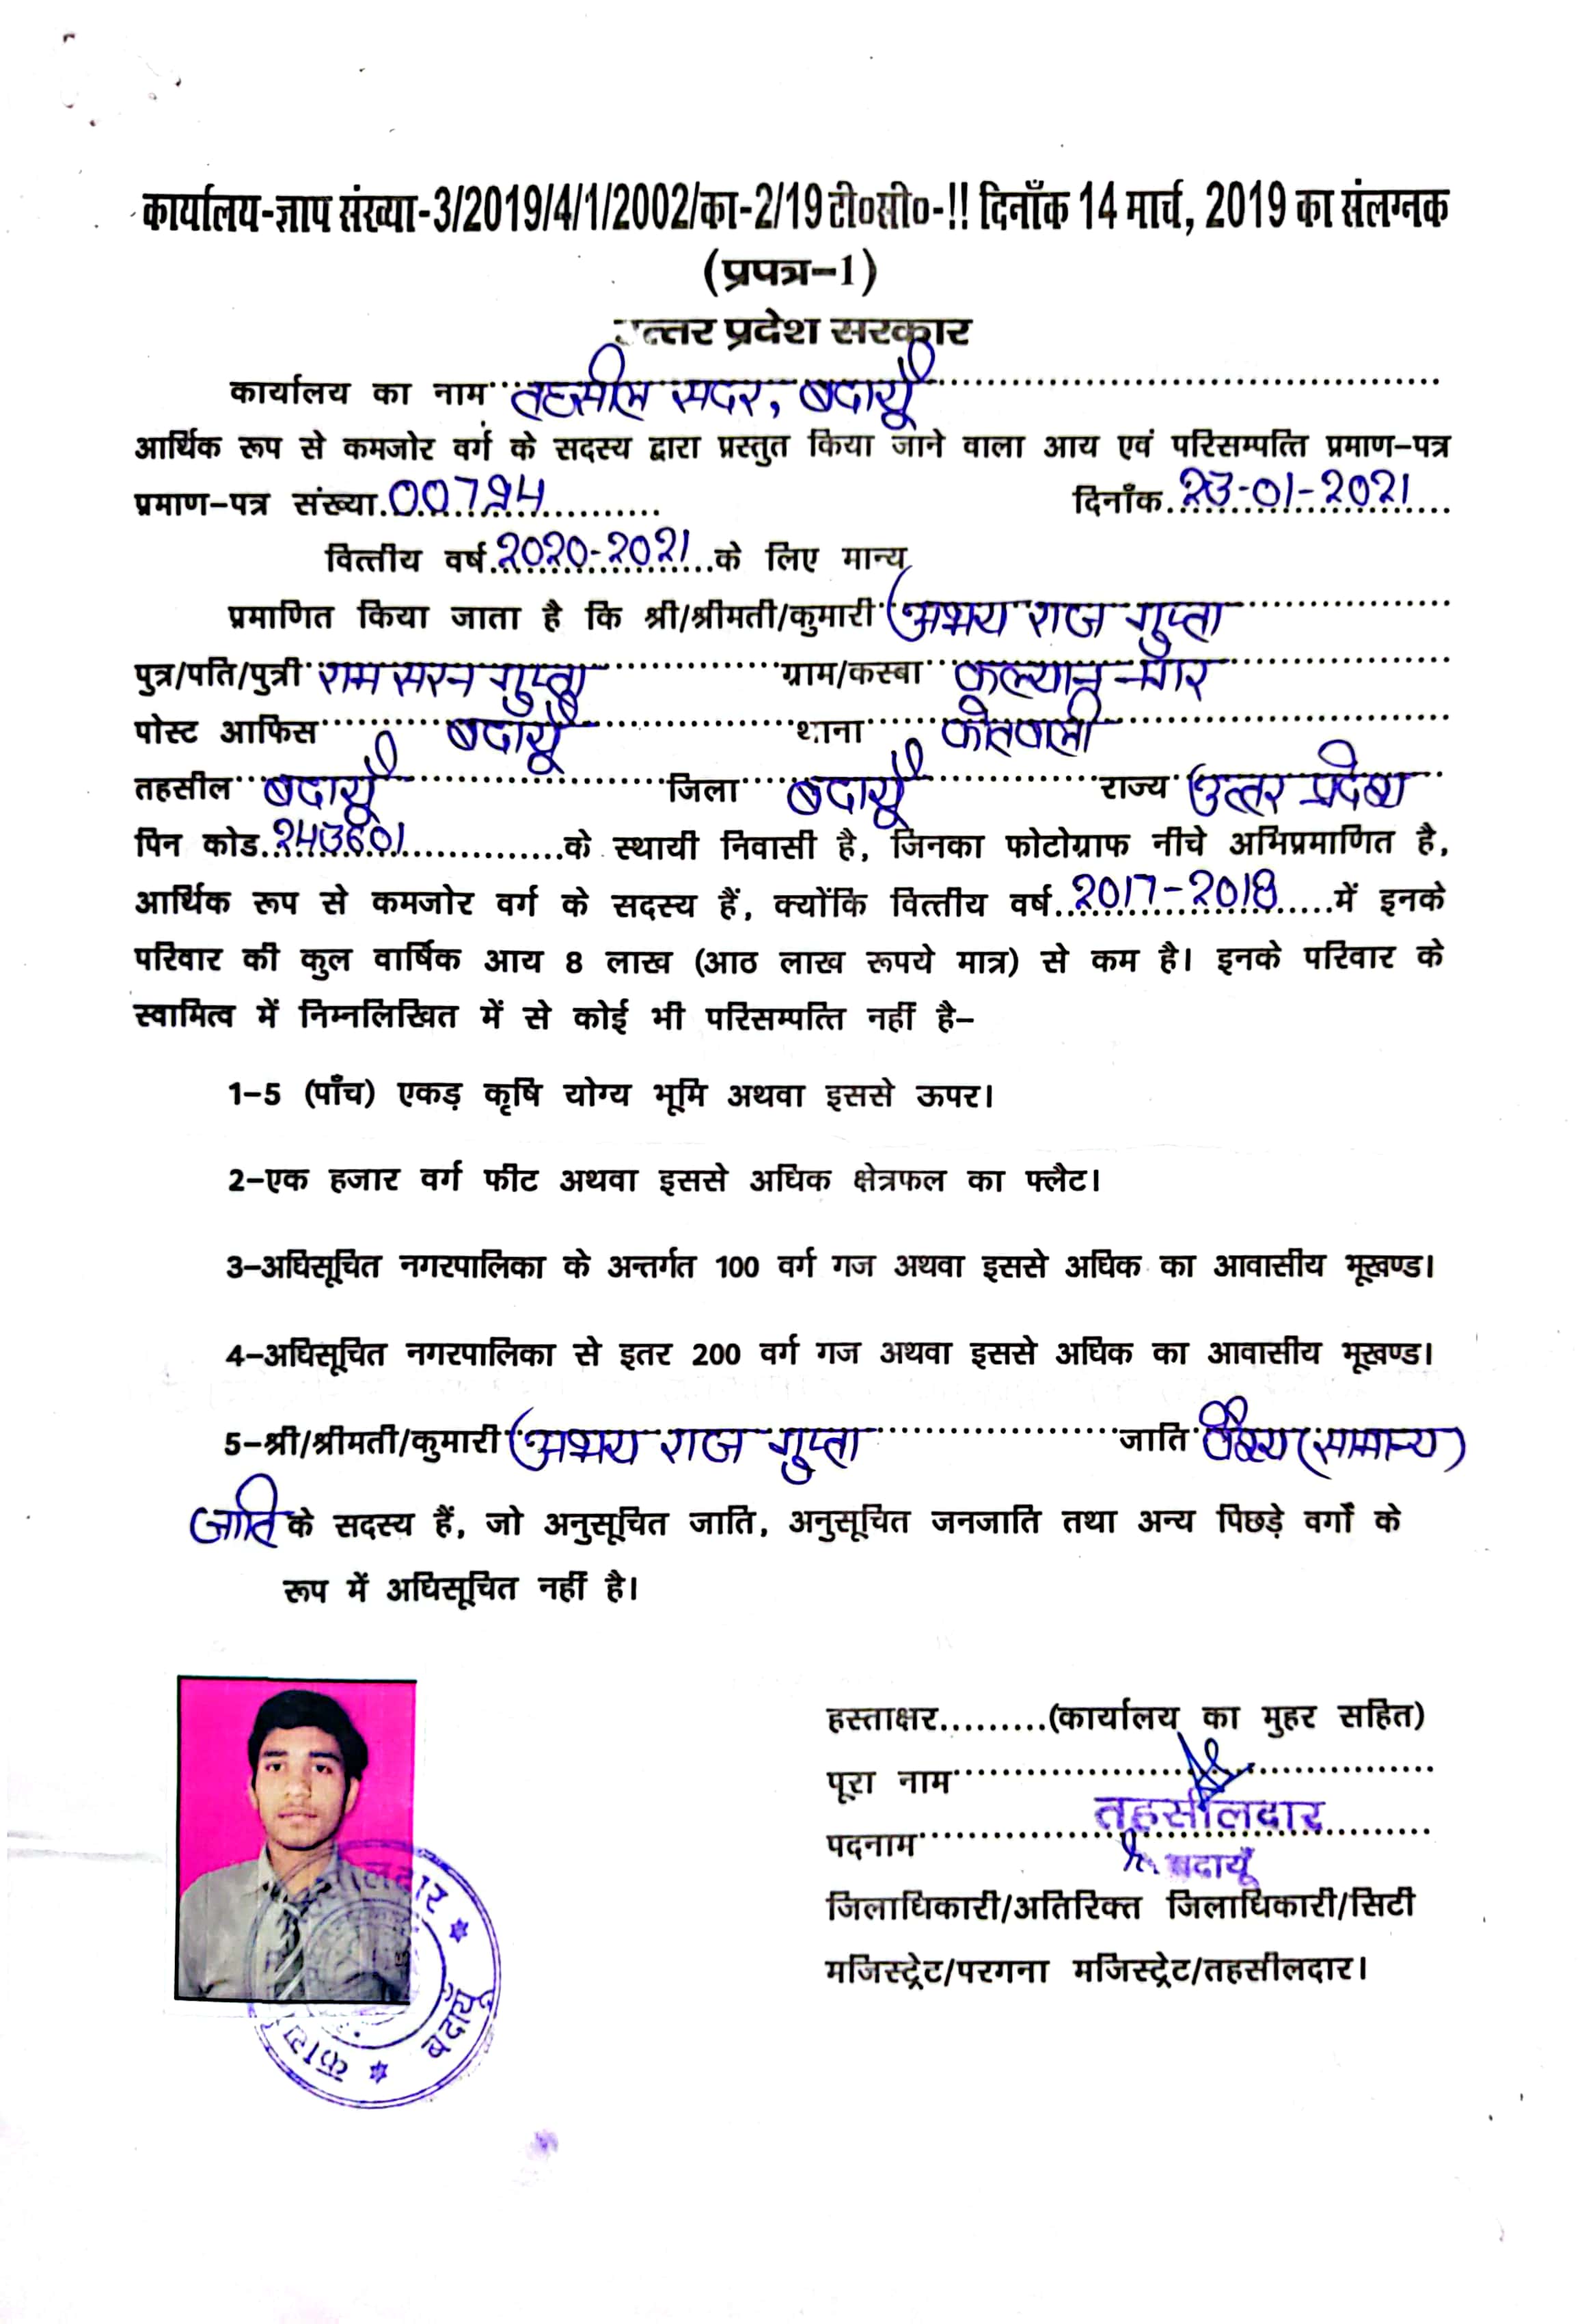 कार्यालय-ज्ञाप संख्या-3/2019/4/1/2002/का-2/19 टी०सी०-!! दिनाँक 14 मार्च, 2019 का संलग्नक
(प्रपत्र-1)
उत्तर प्रदेश सरकार
कार्यालय का नाम तहसील सदर, बदायूँ
आर्थिक रूप से कमजोर वर्ग के सदस्य द्वारा प्रस्तुत किया जाने वाला आय एवं परिसम्पत्ति प्रमाण-पत्र
प्रमाण-पत्र संख्या. 00794 दिनाँक. 23-01-2021
वित्तीय वर्ष. 2020-2021 के लिए मान्य
प्रमाणित किया जाता है कि श्री/श्रीमती/कुमारी अभय राज गुप्ता
पुत्र/पति/पुत्री राम सरन गुप्ता ग्राम/कस्बा कल्यान नगर
पोस्ट आफिस बदायूँ थाना कोतवाली
तहसील बदायूँ जिला बदायूँ राज्य उत्तर प्रदेश
पिन कोड. 243601 के स्थायी निवासी है, जिनका फोटोग्राफ नीचे अभिप्रमाणित है,
आर्थिक रूप से कमजोर वर्ग के सदस्य हैं, क्योंकि वित्तीय वर्ष. 2017-2018 में इनके
परिवार की कुल वार्षिक आय 8 लाख (आठ लाख रूपये मात्र) से कम है। इनके परिवार के
स्वामित्व में निम्नलिखित में से कोई भी परिसम्पत्ति नहीं है-
1-5 (पाँच) एकड़ कृषि योग्य भूमि अथवा इससे ऊपर।
2-एक हजार वर्ग फीट अथवा इससे अधिक क्षेत्रफल का फ्लैट।
3-अधिसूचित नगरपालिका के अन्तर्गत 100 वर्ग गज अथवा इससे अधिक का आवासीय भूखण्ड।
4-अधिसूचित नगरपालिका से इतर 200 वर्ग गज अथवा इससे अधिक का आवासीय भूखण्ड।
5-श्री/श्रीमती/कुमारी अभय राज गुप्ता जाति वैश्य (सामान्य)
जाति के सदस्य हैं, जो अनुसूचित जाति, अनुसूचित जनजाति तथा अन्य पिछड़े वर्गों के
रूप में अधिसूचित नहीं है।
हस्ताक्षर.........(कार्यालय का मुहर सहित)
पूरा नाम
तहसीलदार
पदनाम
बदायूँ
जिलाधिकारी/अतिरिक्त जिलाधिकारी/सिटी
मजिस्ट्रेट/परगना मजिस्ट्रेट/तहसीलदार।
बदायूँ